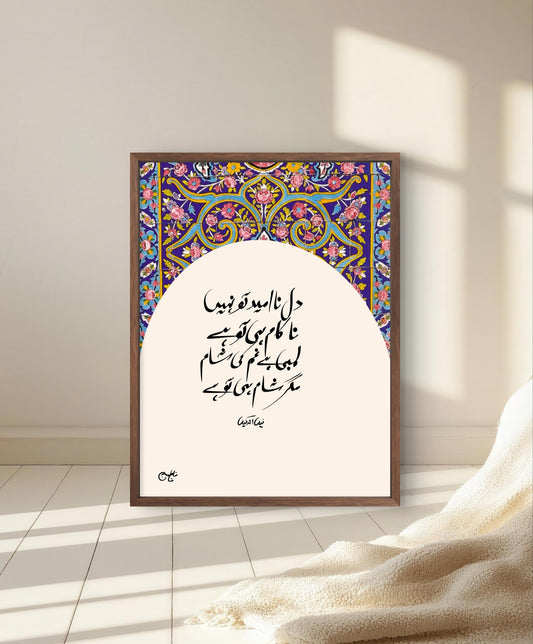 دل ناامید تو نہیں
ناکام ہی تو ہے
لمبی ہے غم کی شام
مگر شام ہی تو ہے